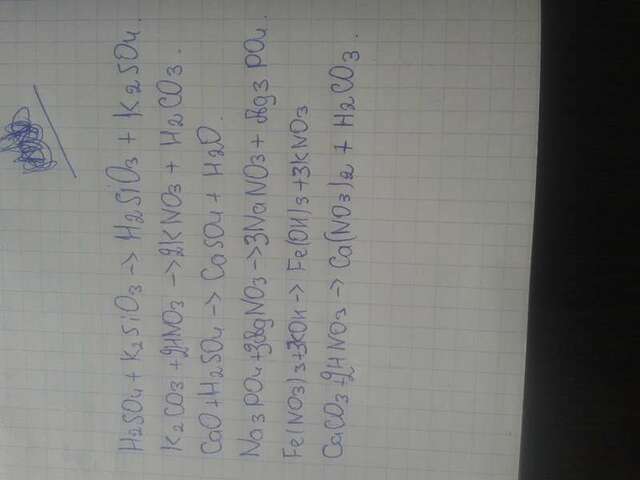 H2SO4 + K2SiO3 -> H2SiO3 + K2SO4.
K2CO3 + 2HNO3 -> 2KNO3 + H2CO3.
CaO + H2SO4 -> CaSO4 + H2O.
Na3PO4 + 3AgNO3 -> 3NaNO3 + Ag3PO4.
Fe(NO3)3 + 3KOH -> Fe(OH)3 + 3KNO3
CaCO3 + 2HNO3 -> Ca(NO3)2 + H2CO3.